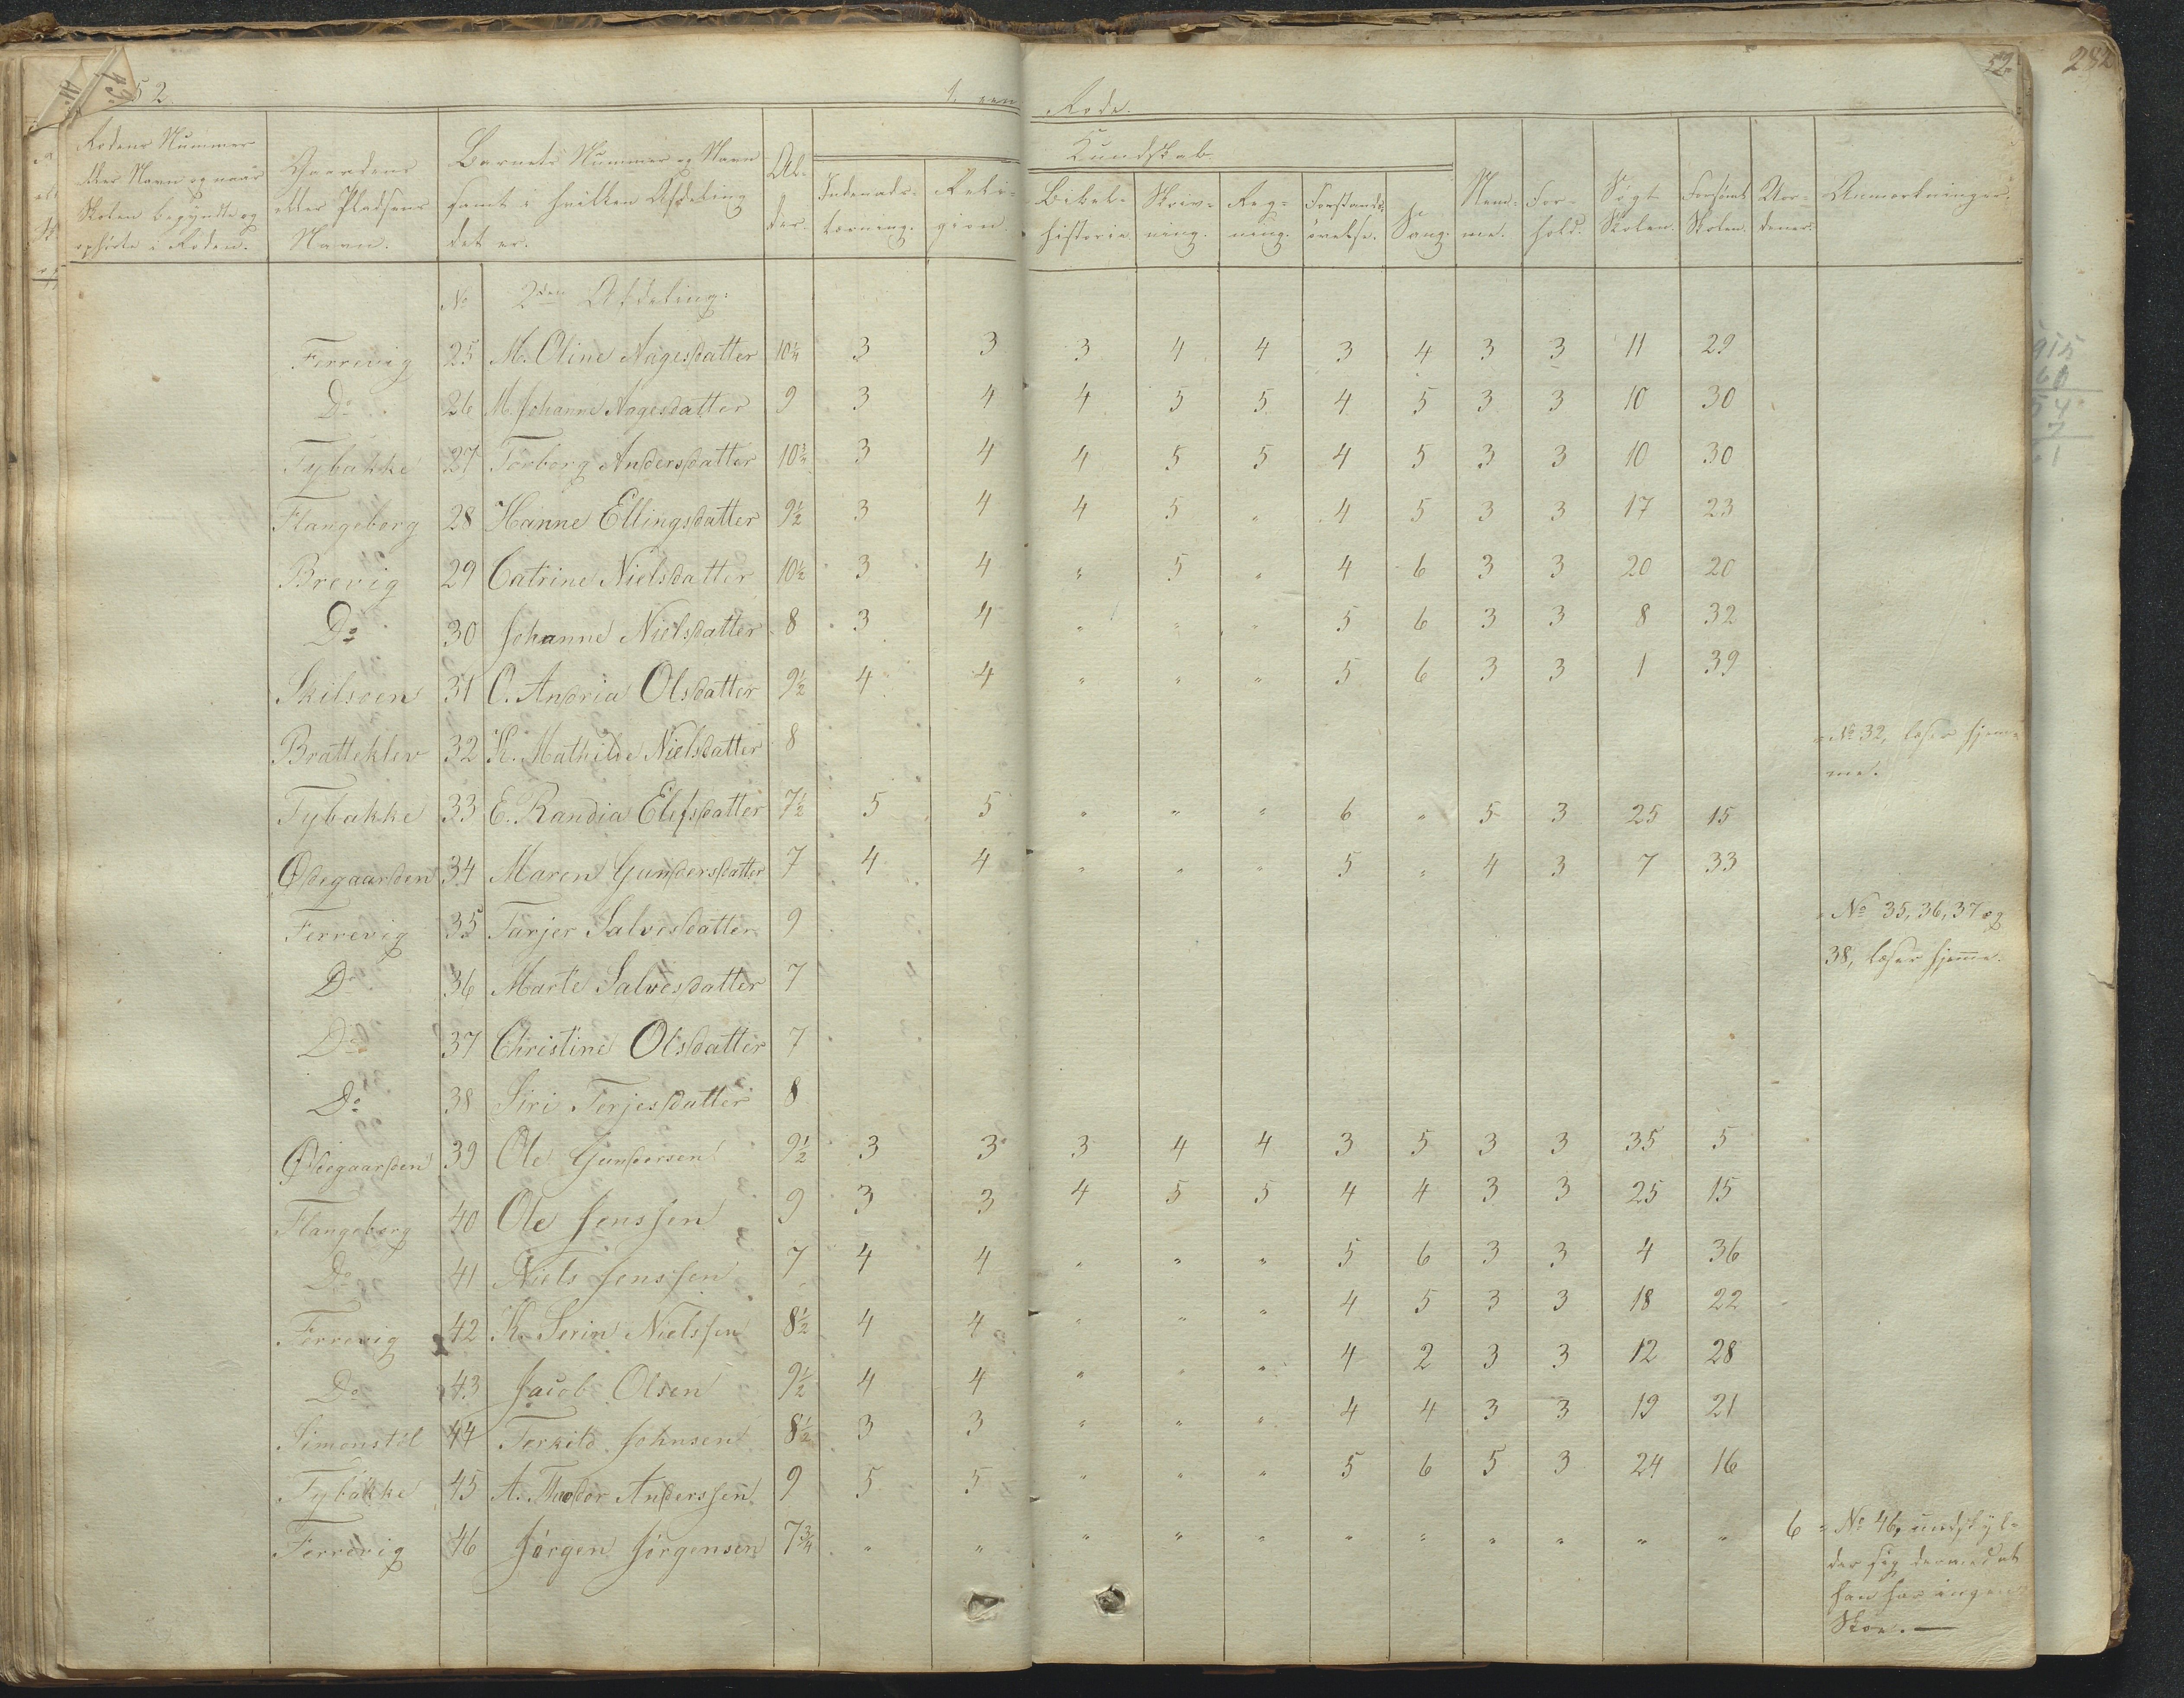 52
1.
Rode.
52.
282
Rodens Nummer
eller Navn og naar
Skolen begyndte og
ophørte i Roden.
Gaardens
eller Pladsens
Navn.
Barnets Nummer og Navn
samt i hvilken Afdeling
det er.
Al-
der.
Indenads-
læsning.
Reli-
gion.
Kundskab
Bibel-
historie
Skriv-
ning.
Reg-
ning.
Forstands-
øvelse.
Sang.
Nem-
me.
For-
hold.
Søgt
Skolen.
Forsømt
Skolen.
Anmærkninger.
No 2den Afdeling:
Ferrevig 25 M. Oline Aagesdatter 10¼ 3 3 3 4 4 3 4 3 3 11 29
Do 26 M. Johanne Aagesdatter 9 3 4 4 5 5 4 5 3 3 10 30
Tybakke 27 Torborg Andersdatter 10¾ 3 4 4 5 5 4 5 3 3 10 30
Flangeborg 28 Hanne Ellingsdatter 9½ 3 4 4 5 " 4 5 3 3 17 23
Brevig 29 Catrine Nielsdatter 10½ 3 4 " 5 " 4 6 3 3 20 20
Do 30 Johanne Nielsdatter 8 3 4 " " " 5 6 3 3 8 32
Skilsøen 31 O. Andria Olsdatter 9½ 4 4 " " " 5 6 3 3 1 39
Bratteklev 32 K. Mathilde Nielsdatter 8 = No 32, læser hjem-
me.
Tybakke 33 E. Randia Elefsdatter 7½ 5 5 " " " 6 " 5 3 25 15
Ødegaarden 34 Maren Gundersdatter 7 4 4 " " " 5 " 4 3 7 33
Ferrevig 35 Tarjer Salvesdatter 9 = No 35, 36, 37 og
38, læser hjemme.
Do 36 Marte Salvesdatter 7
Do 37 Christine Olsdatter 7
Do 38 Siri Terjesdatter 8
Ødegaarden 39 Ole Gundersen 9½ 3 3 3 4 4 3 5 3 3 35 5
Flangeborg 40 Ole Jenssen 9 3 3 4 5 5 4 4 3 3 25 15
Do 41 Niels Jenssen 7 4 4 " " " 5 6 3 3 4 36
Ferrevig 42 K. Serin Nielssen 8½ 4 4 " " " 4 5 3 3 18 22
Do 43 Jacob Olsen 9½ 4 4 " " " 4 2 3 3 12 28
Simonstel 44 Terkild Johnsen 8½ 3 3 " " " 4 4 3 3 19 21
Tybakke 45 A. Theodor Anderssen 9 5 5 " " " 5 6 5 3 24 16
Ferrevig 46 Jørgen Jørgensen 7¾ " " " " " " " " " " " 6 = No 46, undskyl-
der sig dermed at
han har ingen
Skoe. —